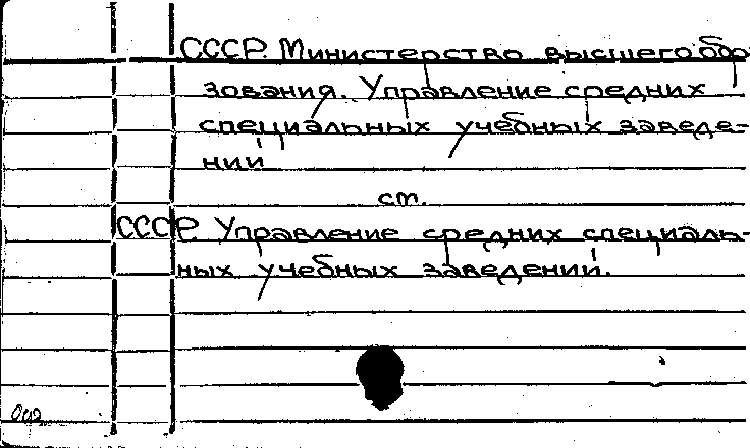 СССР. Министерство высшего обра
зования. Управление средних
специальных учебных заведе-
ний
см.
СССР Управление средних специаль-
ных учебных заведений.